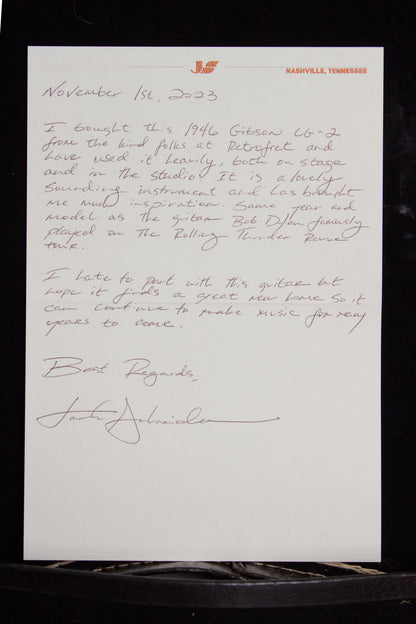 JS
NASHVILLE, TENNESSEE
November 1st, 2023
I bought this 1946 Gibson LG-2
from the kind folks at Retrofret and
have used it heavily, both on stage
and in the studio. It is a lovely
sounding instrument and has brought
me much inspiration. Same year and
model as the guitar Bob Dylan famously
played on the Rolling Thunder Revue
tour.
I hate to part with this guitar but
hope it finds a great new home so it
can continue to make music for many
years to come.
Best Regards,